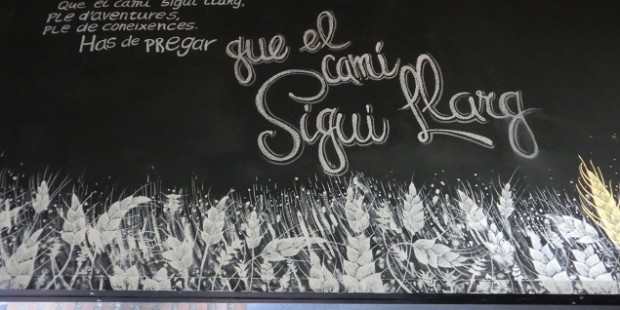 Que el camí sigui llarg,
ple d'aventures,
ple de coneixences.
Has de pregar
que el
camí
Sigui Llarg